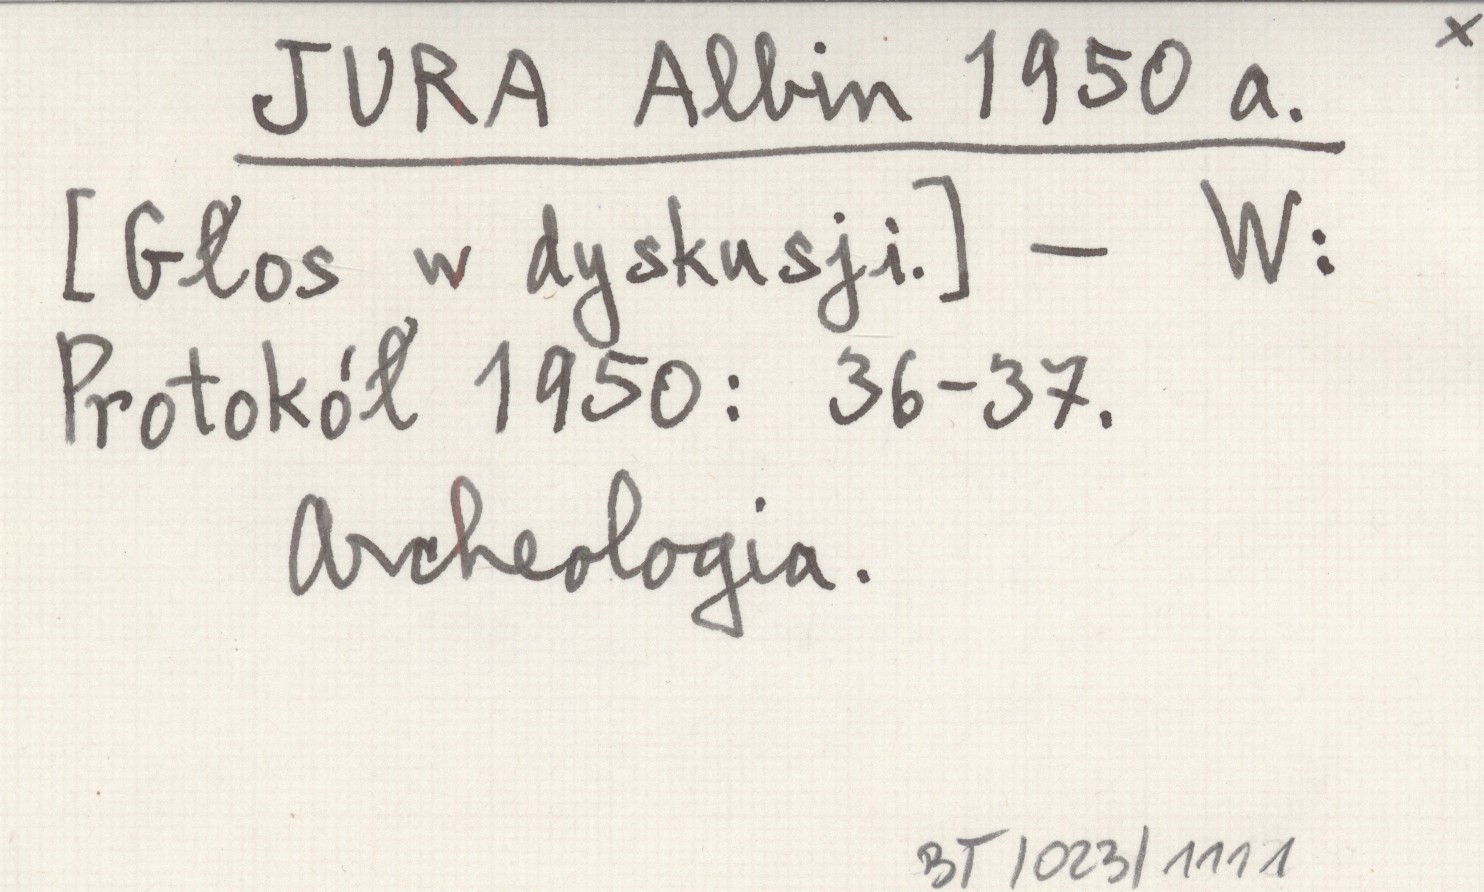 x
JURA Albin 1950 a.
[Głos w dyskusji.] — W:
Protokół 1950: 36-37.
Archeologia.
BT/023/1111